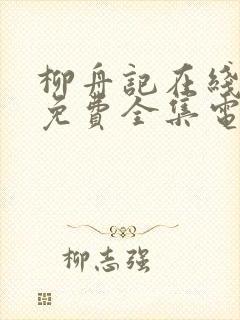 柳舟記在綫
免費全集電
柳志强